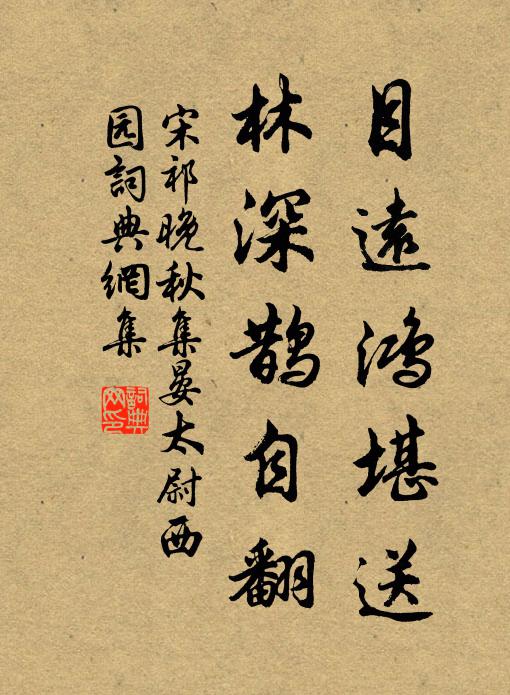 目遠鴻堪送
林深鵲自翻
宋祁晚秋集晏太尉西
园詞典網集
詞典
网印